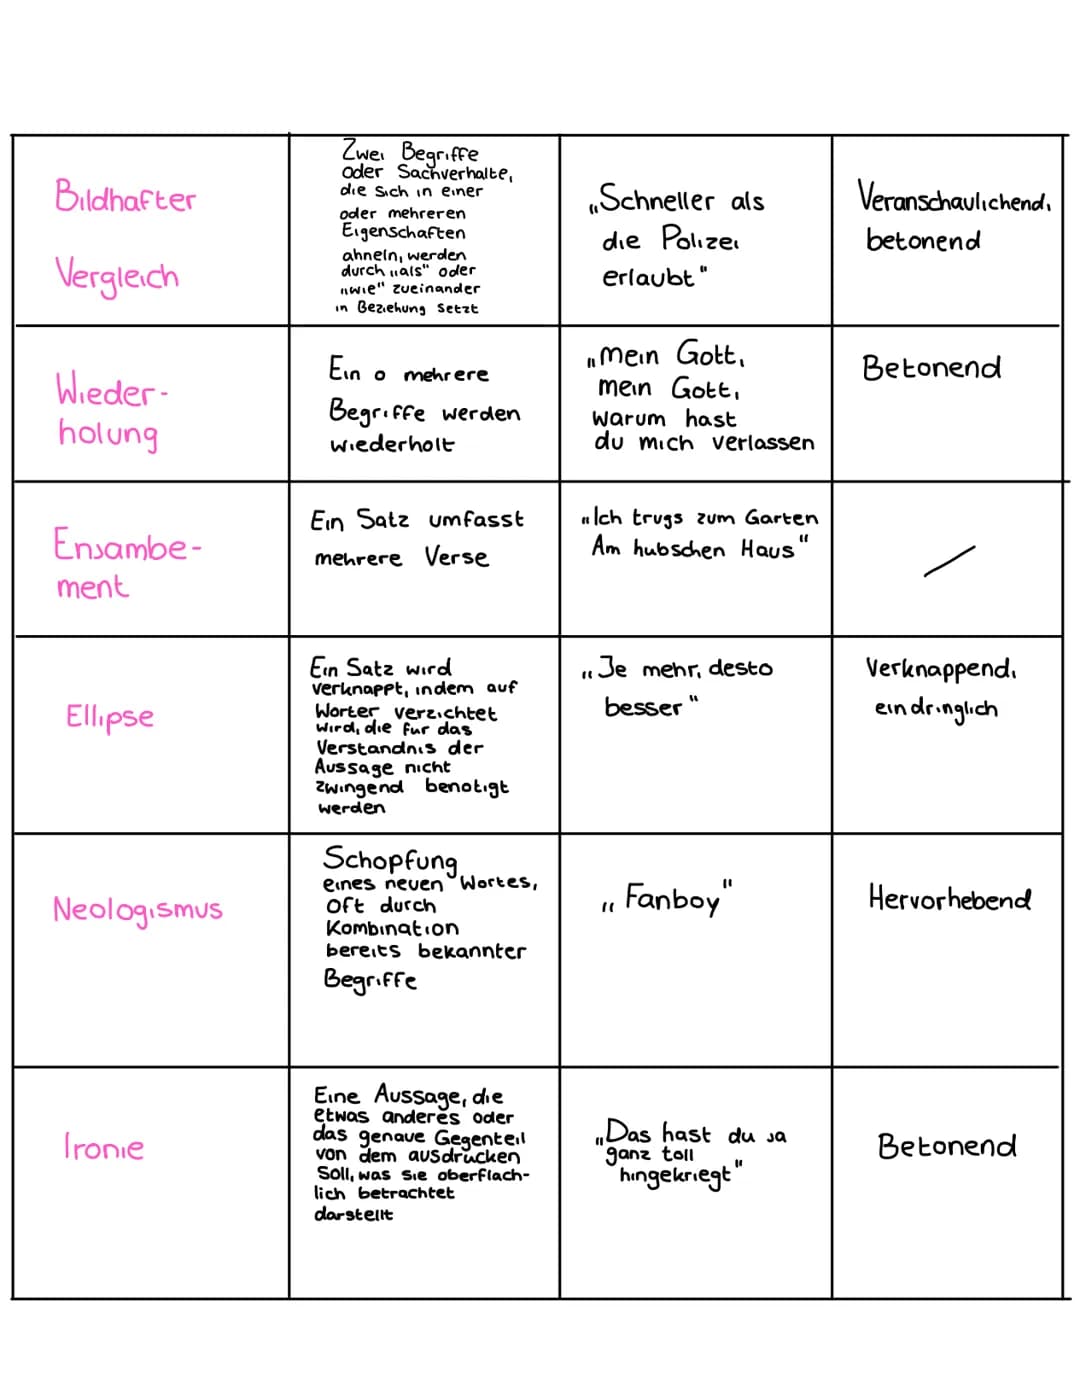 Bildhafter
Vergleich
Zwei Begriffe
oder Sachverhalte,
die sich in einer
oder mehreren
Eigenschaften
ahneln, werden
durch „als" oder
„wie" zueinander
in Beziehung setzt
„Schneller als
die Polizei
erlaubt"
Veranschaulichend,
betonend
Wieder-
holung
Ein o mehrere
Begriffe werden
wiederholt
„mein Gott,
mein Gott,
warum hast
du mich verlassen
Betonend
Ensambe-
ment
Ein Satz umfasst
mehrere Verse
„Ich trugs zum Garten
Am hubschen Haus"
Ellipse
Ein Satz wird
verknappt, indem auf
Worter verzichtet
wird, die fur das
Verstandnis der
Aussage nicht
zwingend benotigt
werden
„Je mehr, desto
besser"
Verknappend,
eindringlich
Neologismus
Schopfung
eines neuen Wortes,
oft durch
Kombination
bereits bekannter
Begriffe
„Fanboy"
Hervorhebend
Ironie
Eine Aussage, die
etwas anderes oder
das genaue Gegenteil
von dem ausdrucken
soll, was sie oberflach-
lich betrachtet
darstellt
„Das hast du ja
ganz toll
hingekriegt"
Betonend